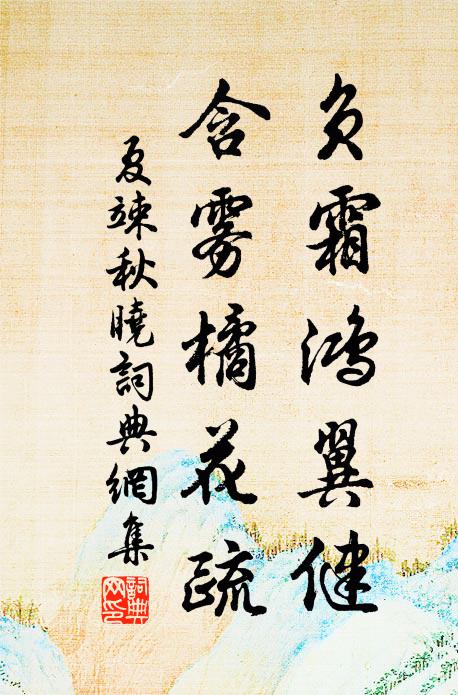 负霜鸿翼健
含雾橘花疏
夏竦秋曉詞典網集
詞典网印